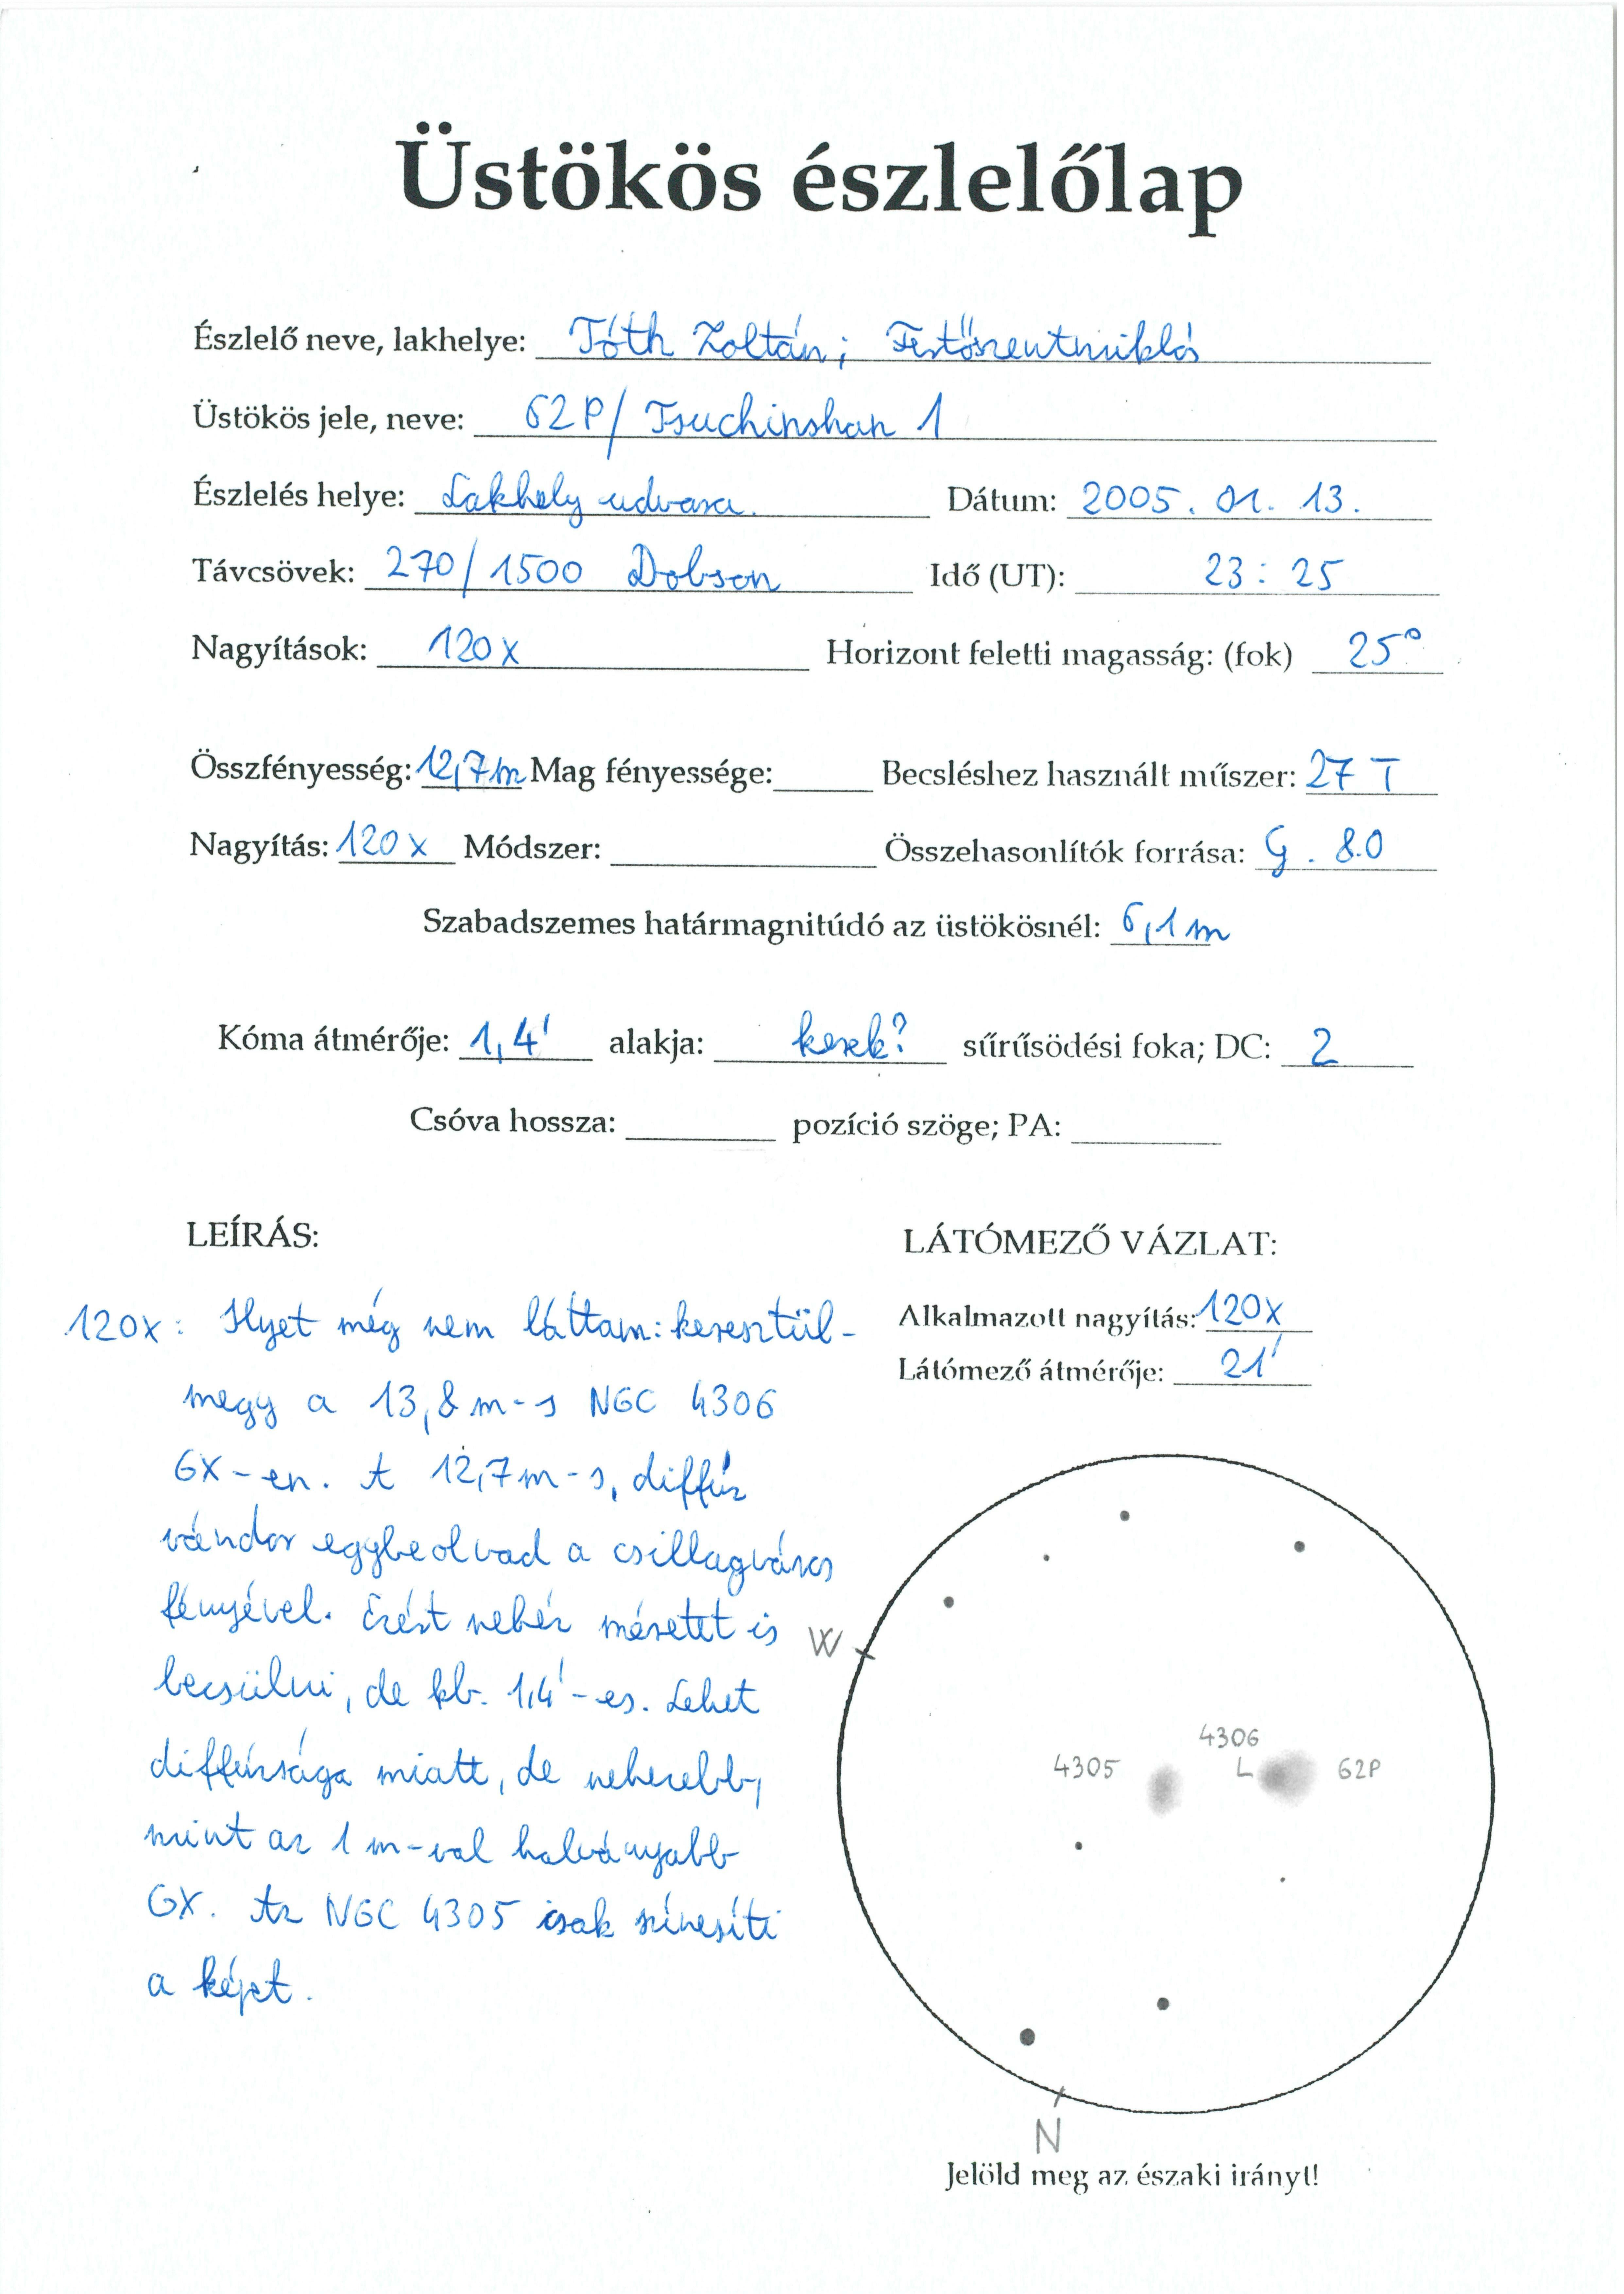 Üstökös észlelőlap
Észlelő neve, lakhelye: Tóth Zoltán; Fertőszentmiklós
Üstökös jele, neve: 62P/Tsuchinshan 1
Észlelés helye: Lakhely udvara. Dátum: 2005. 01. 13.
Távcsövek: 270/1500 Dobson Idő (UT): 23:25
Nagyítások: 120x Horizont feletti magasság: (fok) 25°
Összfényesség: 12,7m Mag fényessége: Becsléshez használt műszer: 27 T
Nagyítás: 120x Módszer: Összehasonlítók forrása: G. 8.0
Szabadszemes határmagnitúdó az üstökösnél: 6,1m
Kóma átmérője: 1,4' alakja: kerek? sűrűsödési foka; DC: 2
Csóva hossza: pozíció szöge; PA:
LEÍRÁS:
120x: Ilyet még nem láttam: keresztül-
megy a 13,8m-s NGC 4306
GX-en. A 12,7m-s, diffúz
vándor egybeolvad a csillagváros
fényével. Ezért nehéz méretet is
becsülni, de kb. 1,4'-es. Lehet
diffúzsága miatt, de nehezebb,
mint az 1m-val halványabb
GX. Az NGC 4305 csak színesíti
a képet.
LÁTÓMEZŐ VÁZLAT:
Alkalmazott nagyítás: 120x
Látómező átmérője: 21'
W
4306
4305 62P
N
Jelöld meg az északi irányt!